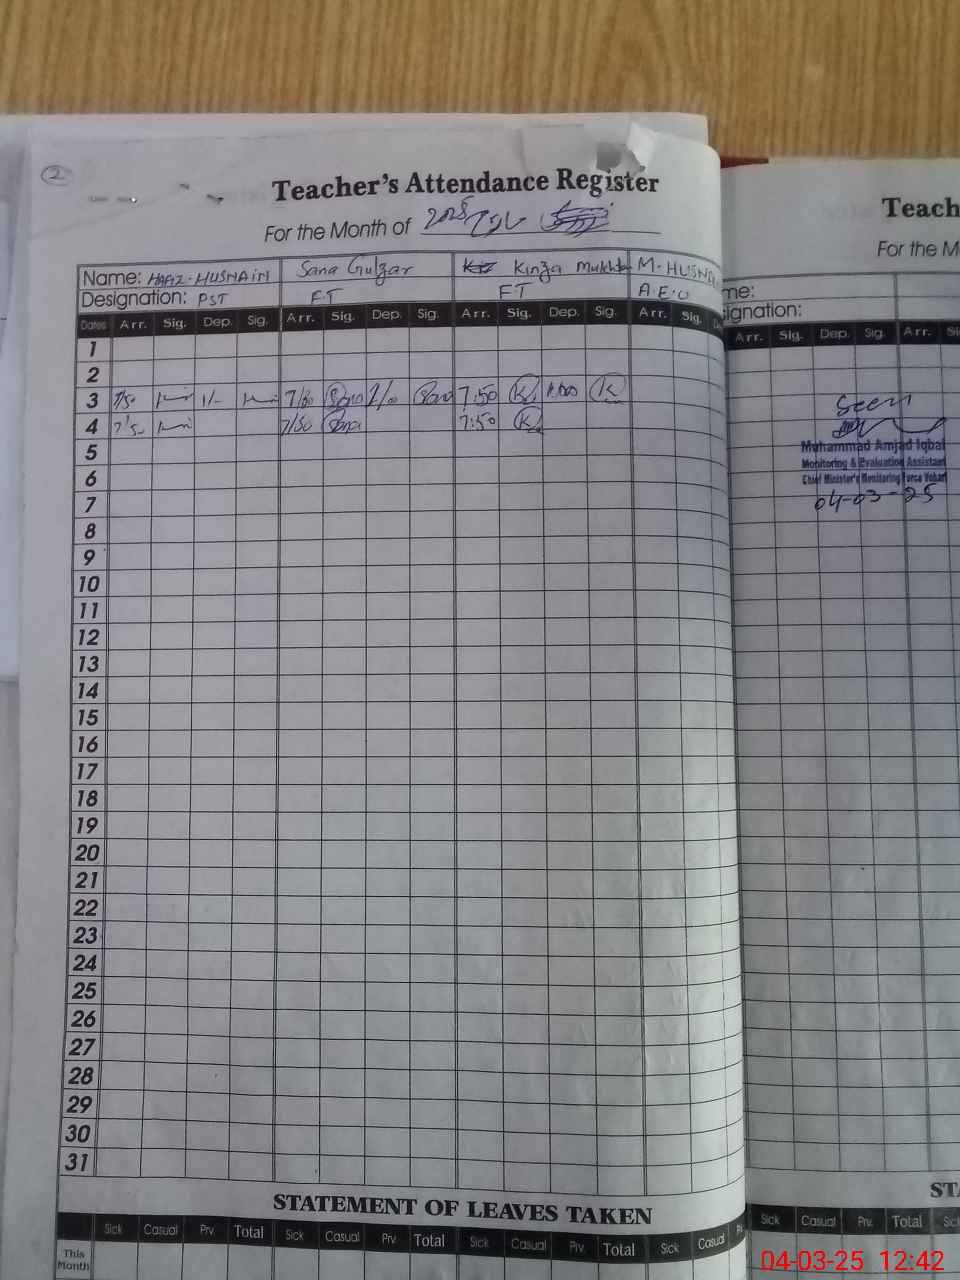 2
Teacher's Attendance Register
For the Month of 2025 مارچ
Name: HAFIZ. HUSNAIN Sana Gulzar Kinza Mukhta M. HUSNA
Designation: PST FT FT A.E.O
Dates Arr. Sig. Dep. Sig. Arr. Sig. Dep. Sig. Arr. Sig. Dep. Sig. Arr. Sig.
1
2
3 7/50 1/- 7/50 Sana 1/00 Sana 7:50 K K
4 7/50 7/50 Sana 7:50 K
5
6
7
8
9
10
11
12
13
14
15
16
17
18
19
20
21
22
23
24
25
26
27
28
29
30
31
STATEMENT OF LEAVES TAKEN
Sick Casual Prv. Total Sick Casual Prv. Total Sick Casual Prv. Total Sick Casual
This Month
Teach
For the M
me:
ignation:
Arr. Sig. Dep. Sig. Arr.
Seen
Muhammad Amjad Iqbal
Monitoring & Evaluation Assistant
Chief Minister's Monitoring Force Vehari
04-03-25
ST
Sick Casual Prv. Total
04-03-25 12:42